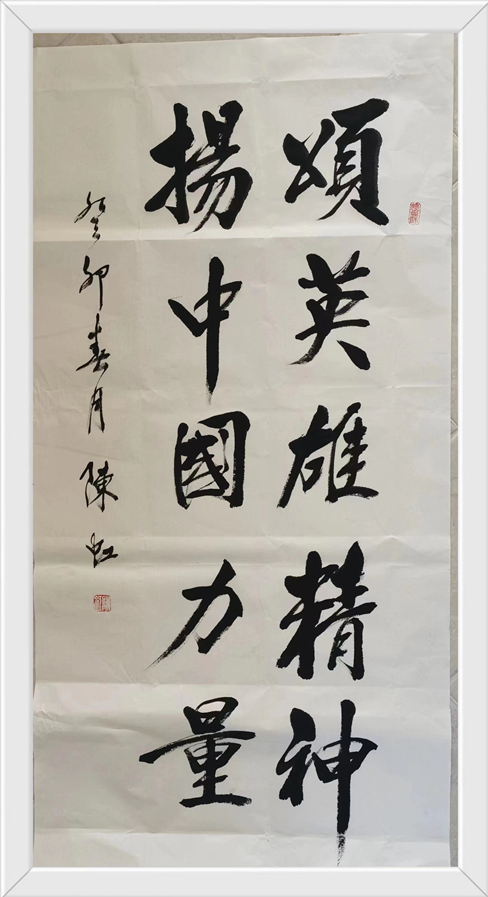 頌英雄精神
揚中國力量
癸卯春月 陳虹